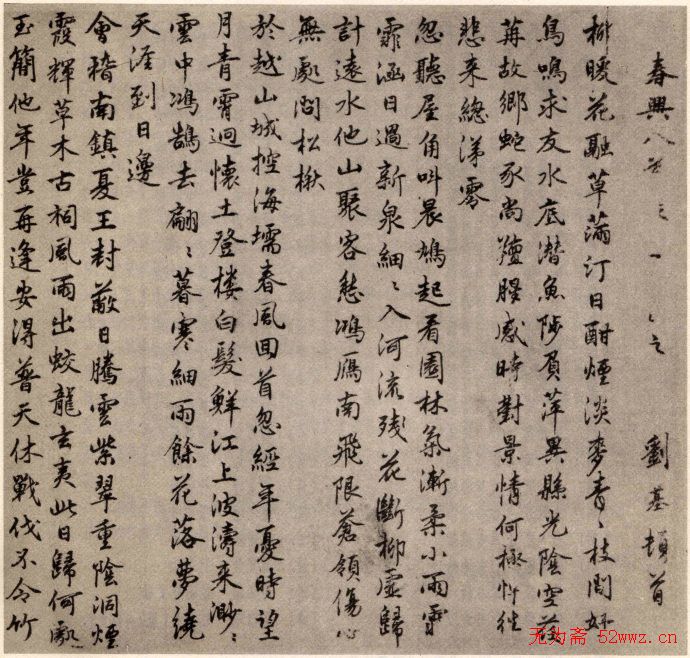 春興八首之一 劉基頓首
柳暖花融草滿汀日酣煙淡麥青〻枝間好
鳥鳴求友水底潛魚陟負萍異縣光陰空荏
苒故鄉蛇豕尚羶腥感時對景情何極忻往
悲來總涕零
忽聽屋角叫晨鳩起看園林氣漸柔小雨霏
霏涵日過新泉細〻入河流殘花斷柳虛歸
計遠水他山聚客愁鴻雁南飛限蒼領傷心
無處問松楸
於越山城控海壖春風回首忽經年憂時望
月青霄迥懷土登樓白髮鮮江上波濤來渺〻
雲中鴻鵠去翩〻暮寒細雨餘花落夢繞
天涯到日邊
會稽南鎮夏王封蔽日騰雲紫翠重陰洞煙
霞輝草木古祠風雨出蛟龍玄夷此日歸何處
玉簡他年豈再逢安得普天休戰伐不令竹
无为斋 52wwz.cn